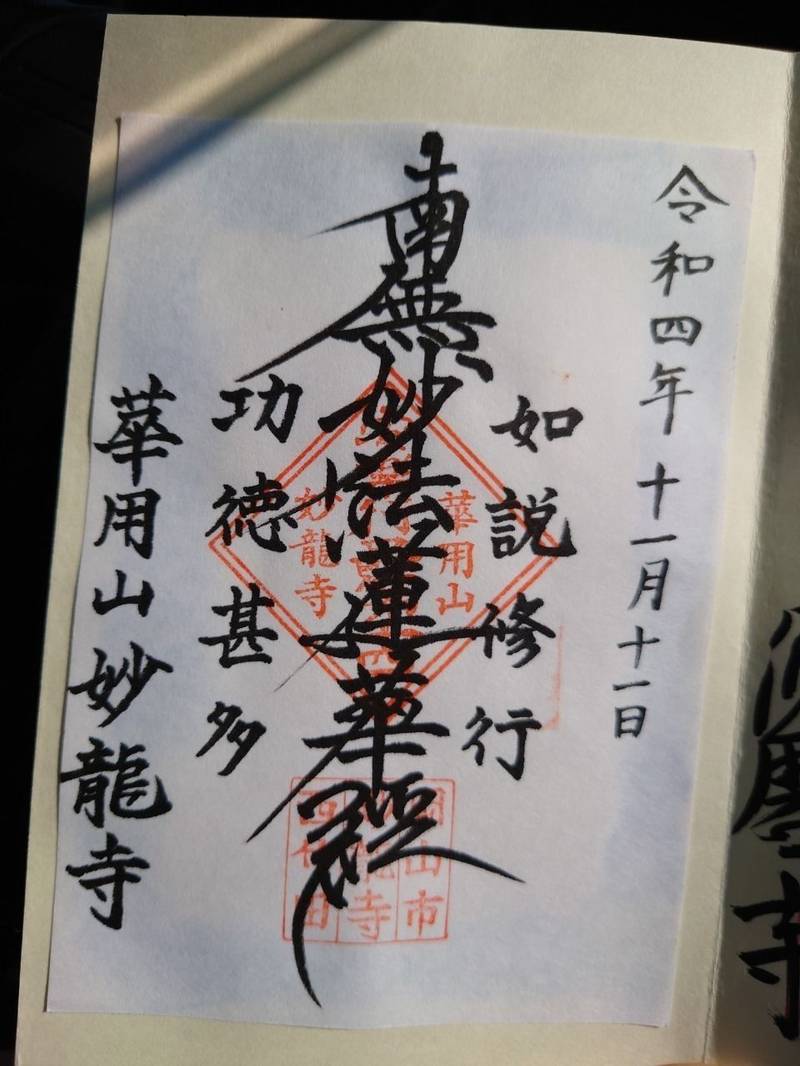 令和四年十一月十一日
如説修行
南無妙法蓮華經
功徳甚多
華用山妙龍寺
華用山
妙龍寺
岡山市
寺